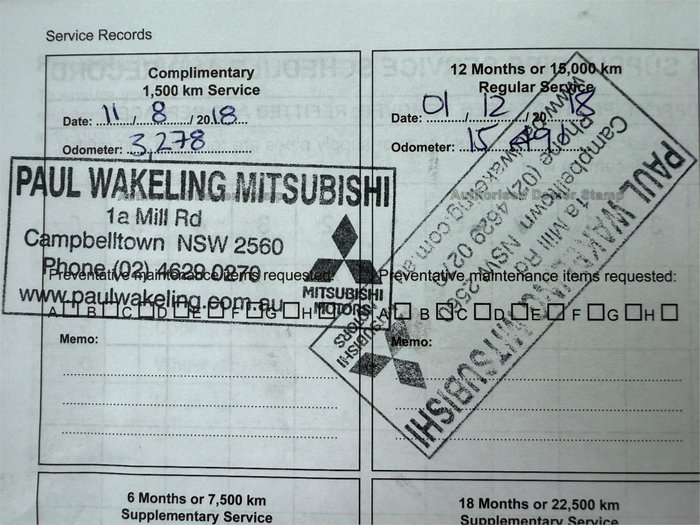 Service Records
Complimentary
1,500 km Service
Date: 11 / 8 / 2018
Odometer: 3,278
PAUL WAKELING MITSUBISHI
1a Mill Rd
Campbelltown NSW 2560
Phone (02) 4629 0270
www.paulwakeling.com.au
MITSUBISHI
MOTORS
Preventative maintenance items requested:
A B C D E F G H
Memo:
12 Months or 15,000 km
Regular Service
Date: 01 / 12 / 2018
Odometer: 15
PAUL WAKELING MITSUBISHI
1a Mill Rd
Campbelltown NSW 256
Phone (02) 4629 02
www.paulwakeling.com.au
MITSUBISHI
MOTORS
Preventative maintenance items requested:
A B C D E F G H
Memo:
6 Months or 7,500 km
Supplementary Service
18 Months or 22,500 km
Supplementary Service